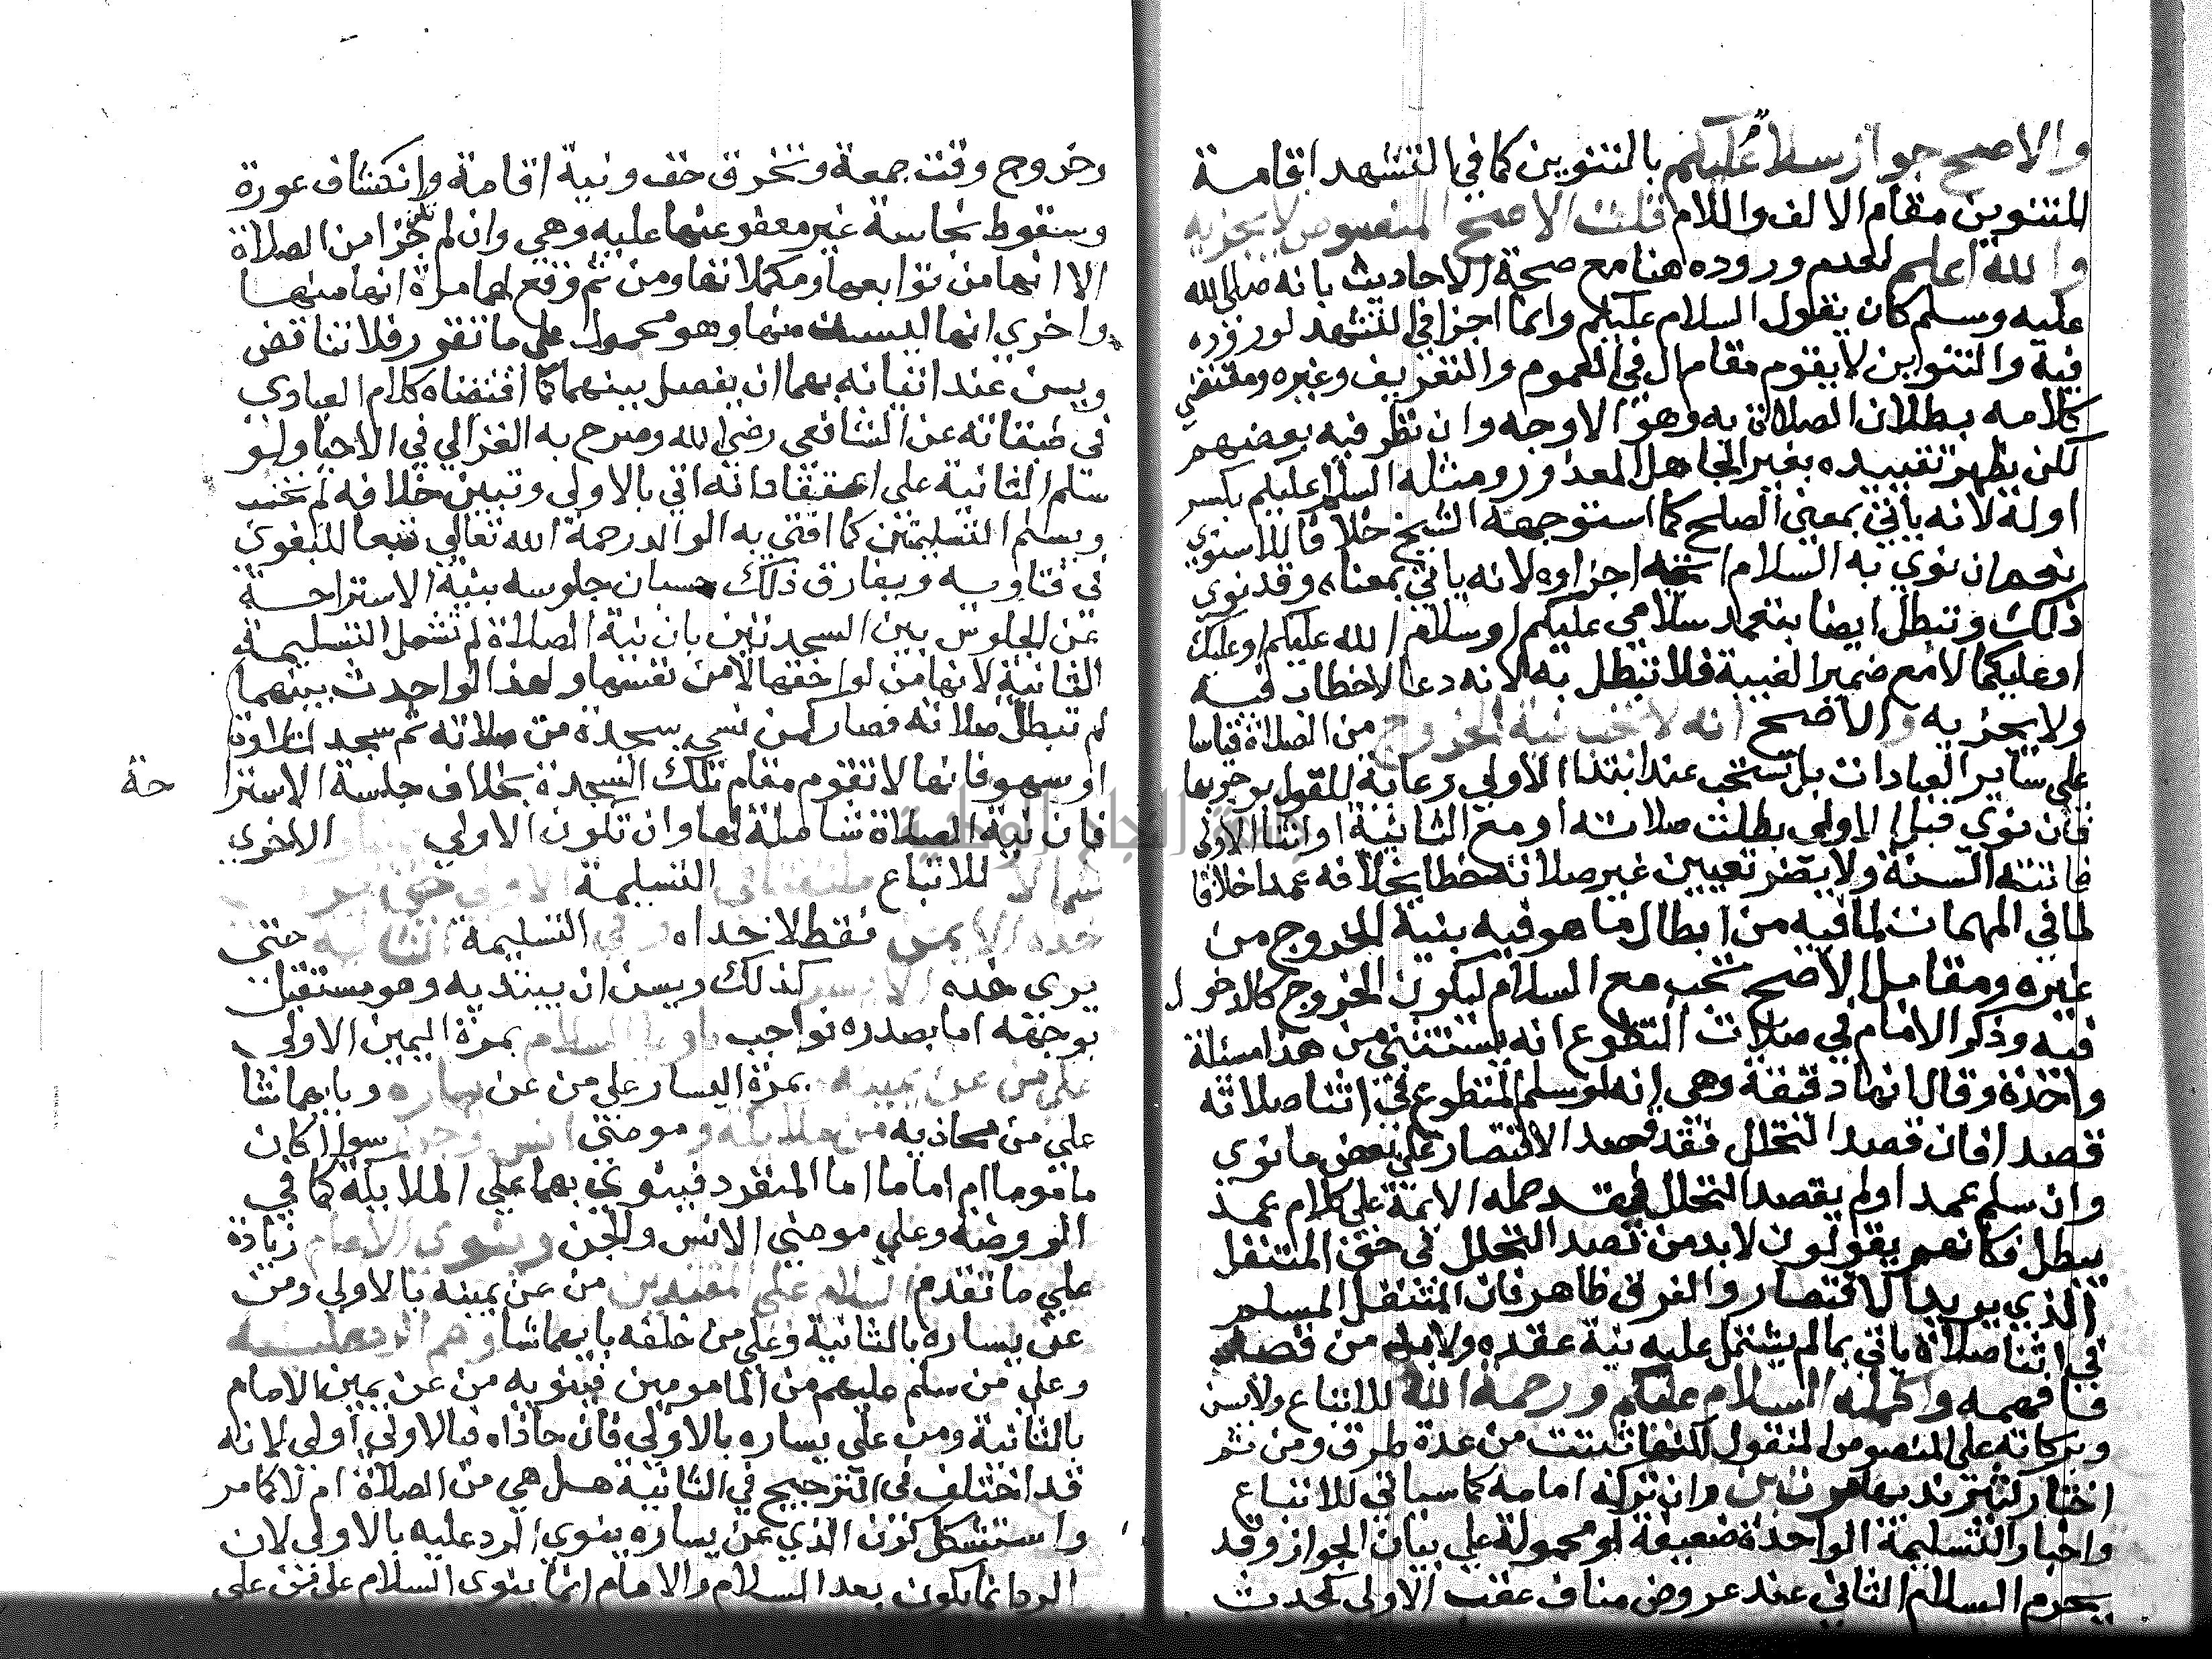 والاصح جواز سلام عليكم بالتنوين كما في التشهد اقامة
للتنوين مقام الالف واللام قلت الاصح المنصوص لا يجزيه
والله اعلم لعدم وروده هنا مع صحة الاحاديث بانه صلى الله
عليه وسلم كان يقول السلام عليكم وانما اجزا في التشهد لوروده
فيه والتنوين لا يقوم مقام ال في العموم والتعريف وغيره ومقتضي
كلامه بطلان الصلاة به وهو الاوجه وان نظر فيه بعضهم
لكن يظهر تقييده بغير الجاهل المعذور ومثله السلم عليكم بكسر
اوله لانه ياتي بمعني الصلح كما استوجهه الشيخ خلافا للاسنوي
نعم ان نوي به السلام اتجه اجزاوه لانه ياتي بمعناه وقد نوي
ذلك وتبطل ايضا بتعمد سلامي عليكم او سلام الله عليكم او عليك
او عليكما لا مع ضمير الغيبة فلا تبطل به لانه دعا لا خطاب فيه
ولا يجزيه والاصح انه لا تجب نية الخروج من الصلاة قياسا
علي ساير العبادات بل تستحب عند ابتدا الاولي رعاية للقول بوجوبها
فان نوي قبل الاولي بطلت صلاته او مع الثانية او اثنا الاولى
فاتته السنة ولا يضر تعيين غير صلاته خطا بخلافه عمدا خلافا
لما في المهمات لما فيه من ابطال ما هو فيه بنية الخروج من
غيره ومقابل الاصح تجب مع السلام ليكون الخروج كالدخول
فيه وذكر الامام في صلات التطوع انه يستثني من هذا مسئلة
واحدة وقال انها دقيقة وهي انه لو سلم المتطوع في اثنا صلاته
قصدا فان قصد التحلل فقد قصد الاقتصار علي بعض ما نوي
وان سلم عمدا ولم يقصد التحلل فقد حمله الايمة علي كلام عمد
يبطل فكانهم يقولون لا بد من قصد التحلل في حق المتنفل
الذي يريد الاقتصار والفرق ظاهر فان المتنفل المسلم
في اثنا صلاة ياتي بما لم يشتمل عليه نية عقده ولا بد من قصد
فافهمه واكمله السلام عليكم ورحمة الله للاتباع ولا يسن
وبركاته علي المنصوص المنقول لكنها ثبتت من عدة طرق ومن ثم
اختار كثير ندبها مرتين وان تركه امامه كما سياتي للاتباع
واخبار التسليمة الواحدة ضعيفة او محمولة علي بيان الجواز وقد
يحرم السلام الثاني عند عروض مناف عقب الاولى كحدث
وخروج وقت جمعة وتخرق خف ونية اقامة وانكشاف عورة
وسقوط نجاسة غير معفو عنها عليه وهي وان لم تكن جزا من الصلاة
الا انها من توابعها ومكملاتها ومن ثم وقع لهما مرة انها منها
واخري انها ليست منها وهو محمول علي ما تقرر فلا تناقض
ويسن عند اتيانه بهما ان يفصل بينهما كما اقتضاه كلام العبادي
في طبقاته عن الشافعي رضي الله وصرح به الغزالي في الاحيا ولو
سلم الثانية علي اعتقاد انه اتي بالاولى وتبين خلافه لم تحسب
ويسلم التسليمتين كما افتي به الوالد رحمة الله تعالي تبعا للبغوي
في فتاويه ويفارق ذلك حسبان جلوسه بنية الاستراحة
عن الجلوس بين السجدتين بان نية الصلاة لم تشمل التسليمة
الثانية لانها من لواحقها لا من نفسها ولهذا لو احدث بينهما
لم تبطل صلاته فصار كمن نسي سجدة من صلاته ثم سجد لتلاوة
او سهو فانها لا تقوم مقام تلك السجدة بخلاف جلسة الاسترا
حة
فان نية الصلاة شاملة لها وان تكون الاولي الاخري
شمالا للاتباع ملتفتا في التسليمة الاولى حتى يرى
خده الايمن فقط لا خداه وفي التسليمة الثانية حتى
يرى خده الايسر كذلك ويسن ان يبتدي به وهو مستقبل
بوجهه اما بصدره فواجب ناويا السلام بمرة اليمين الاولى
علي من عن يمينه بمرة اليسار علي من عن يساره وبايهما شا
علي من محاذيه من ملايكة ومومني انس وجن سوا اكان
ماموما ام اماما اما المنفرد فينوي بهما علي الملايكة كما في
الروضة وعلي مومني الانس والجن وينوي الامام زيادة
علي ما تقدم السلام علي المقتدين من عن يمينه بالاولى ومن
عن يساره بالثانية وعلي من خلفه بايهما شا وهم الرد عليه
وعلي من سلم عليهم من المامومين فينويه من عن يمين الامام
بالثانية ومن علي يساره بالاولي فان حاذاه فبالاولي اولي لانه
قد اختلف في الترجيح في الثانية هل هي من الصلاة ام لا كما مر
واستشكل كون الذي عن يساره ينوي الرد عليه بالاولى لان
الرد انما يكون بعد السلام والامام انما ينوي السلام علي من علي